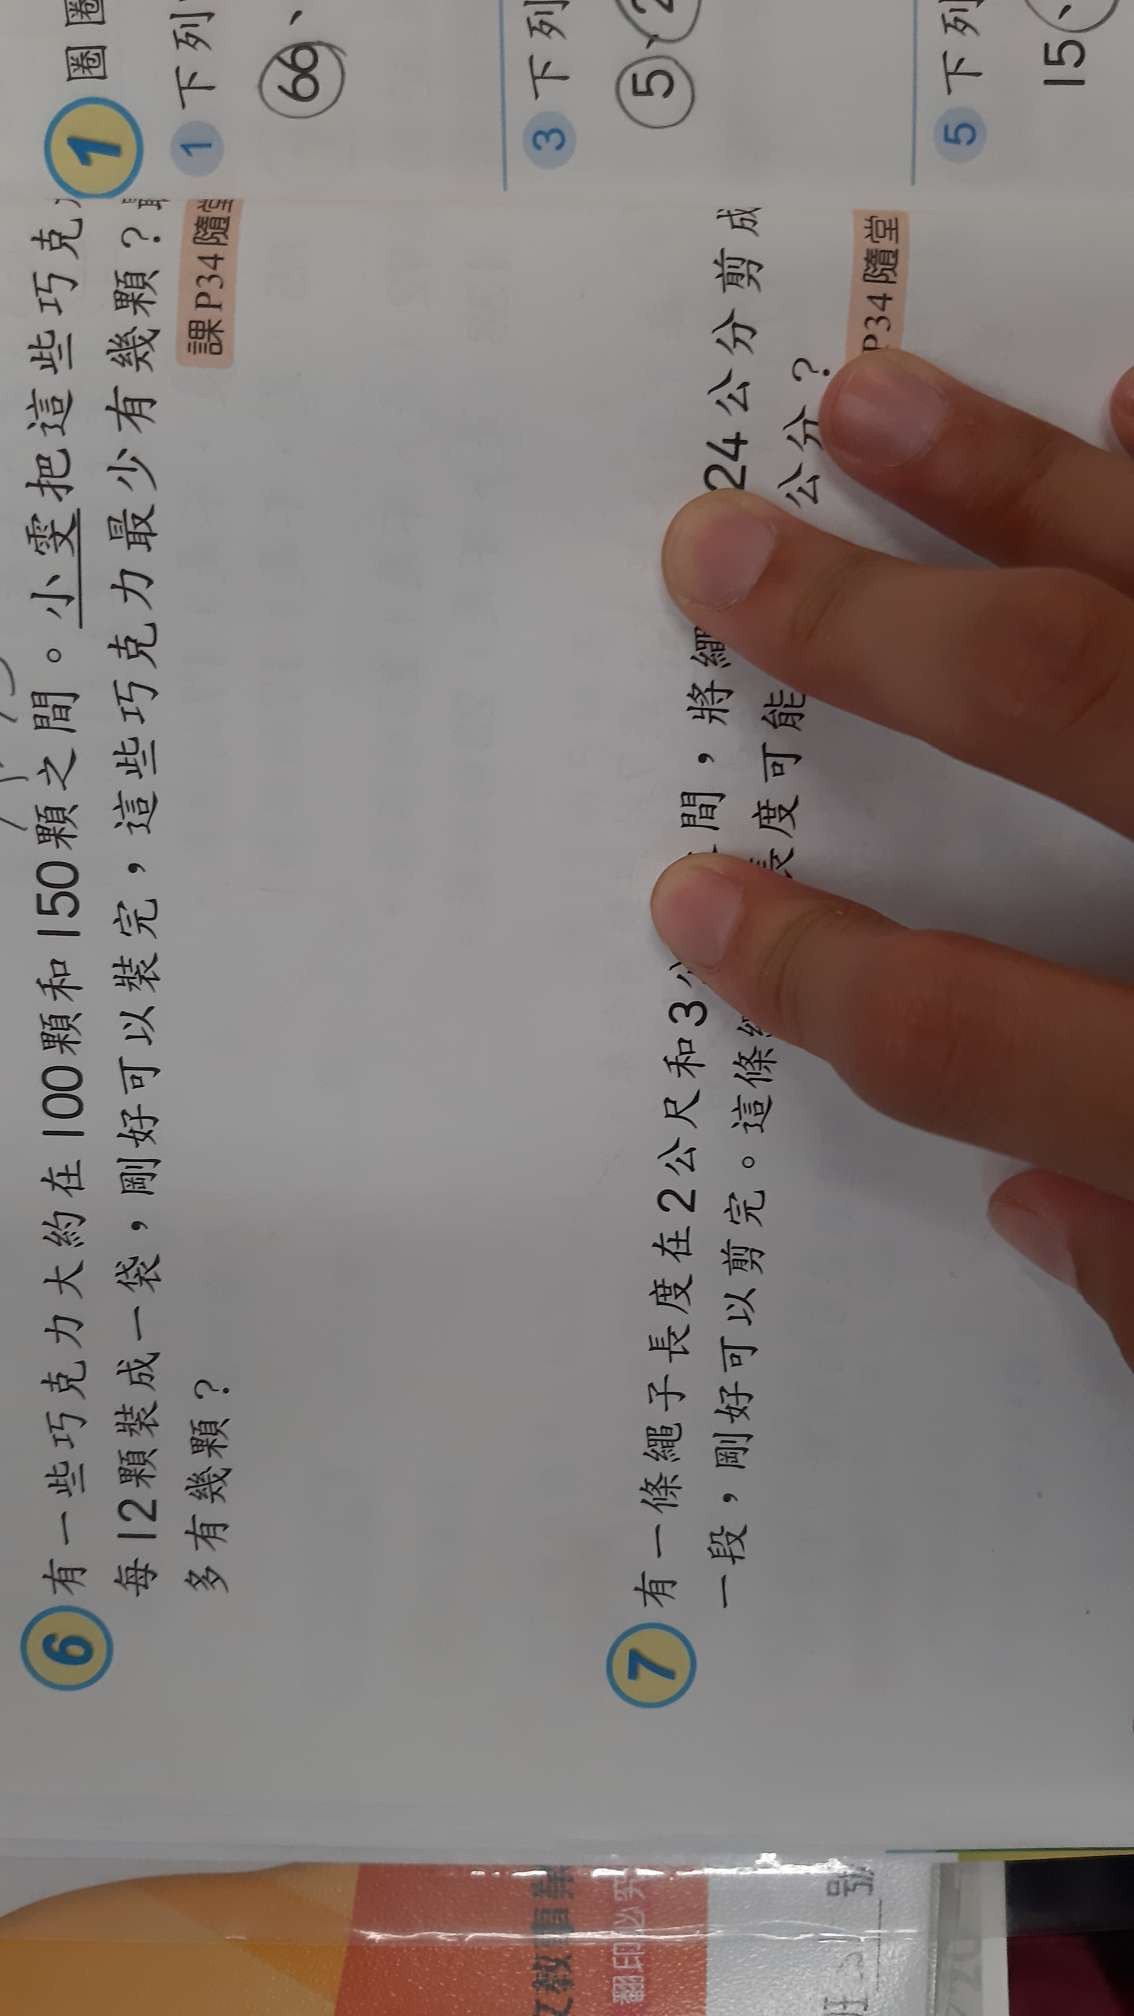 6 有一些巧克力大約在100顆和150顆之間。小雯把這些巧克
每12顆裝成一袋，剛好可以裝完，這些巧克力最少有幾顆？
多有幾顆？
課P34隨堂
7 有一條繩子長度在2公尺和3 間，將繩 24公分剪成
一段，剛好可以剪完。這條 長度可能 公分？
P34隨堂
1 圈圈
1 下列
66、
3 下列
5、2
5 下列
15、
翻印必究
號